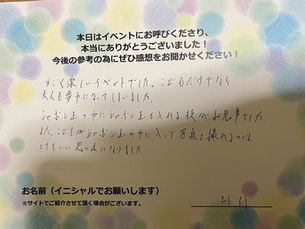 本日はイベントにお呼びくださり、
本当にありがとうございました！
今後の参考の為にぜひ感想をお聞かせください！
すごく楽しいイベントでした。こどもだけでなく
大人も夢中になってしまいました。
シャボン玉の中にシャボン玉を入れる技がお見事でした
また、こどもがシャボン玉の中に入って写真を撮れるのは
とてもいい思い出になりました
お名前（イニシャルでお願いします）
※サイトでご紹介させて頂く場合がございます。